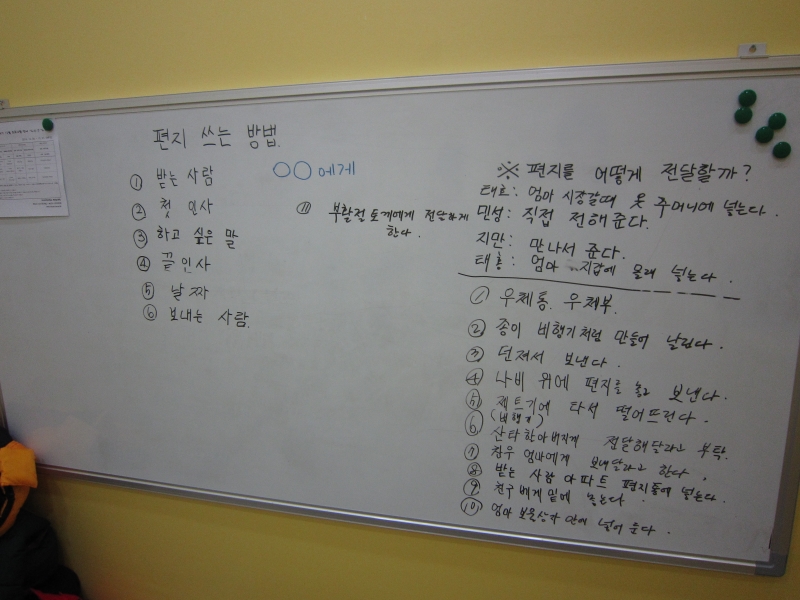 편지 쓰는 방법.
① 받는 사람
○○에게
② 첫 인사
③ 하고 싶은 말
④ 끝인사
⑤ 날짜
⑥ 보내는 사람.
⑪ 부활절 토끼에게 전달하게
한다.
※ 편지를 어떻게 전달할까?
엄마 시장갈때 옷 주머니에 넣는다.
민성: 직접 전해준다.
지만: 만나서 준다.
태흥: 엄마 지갑에 몰래 넣는다.
① 우체통, 우체부.
② 종이 비행기처럼 만들어 날린다.
③ 던져서 보낸다.
④ 나비 위에 편지를 놓고 보낸다.
⑤ 제트기에 타서 떨어뜨린다.
(비행기)
⑥ 산타 할아버지께 전달해달라고 부탁.
⑦ 친구 엄마에게 보내달라고 한다.
⑧ 받는 사람 아파트 편지통에 넣는다.
⑨ 친구 베게 밑에 넣는다.
⑩ 엄마 보물상자 안에 넣어 둔다.